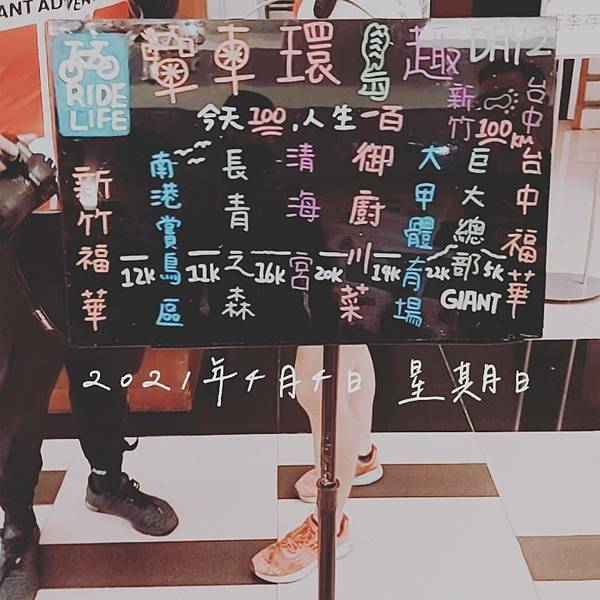 ANT ADVE
RIDE LIFE
單車環島趣 DAY2
新竹 台中
今天100,人生一百 100KM
新竹福華
12K
南港賞鳥區
11K
長青之森
16K
清海宮
20K
御廚川菜
19K
大甲體育場
22K
巨大總部 GIANT
5K
台中福華
2021年4月4日 星期日